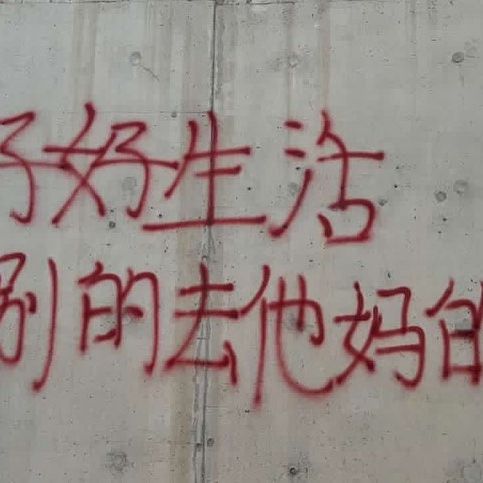 好好生活
别的去他妈的